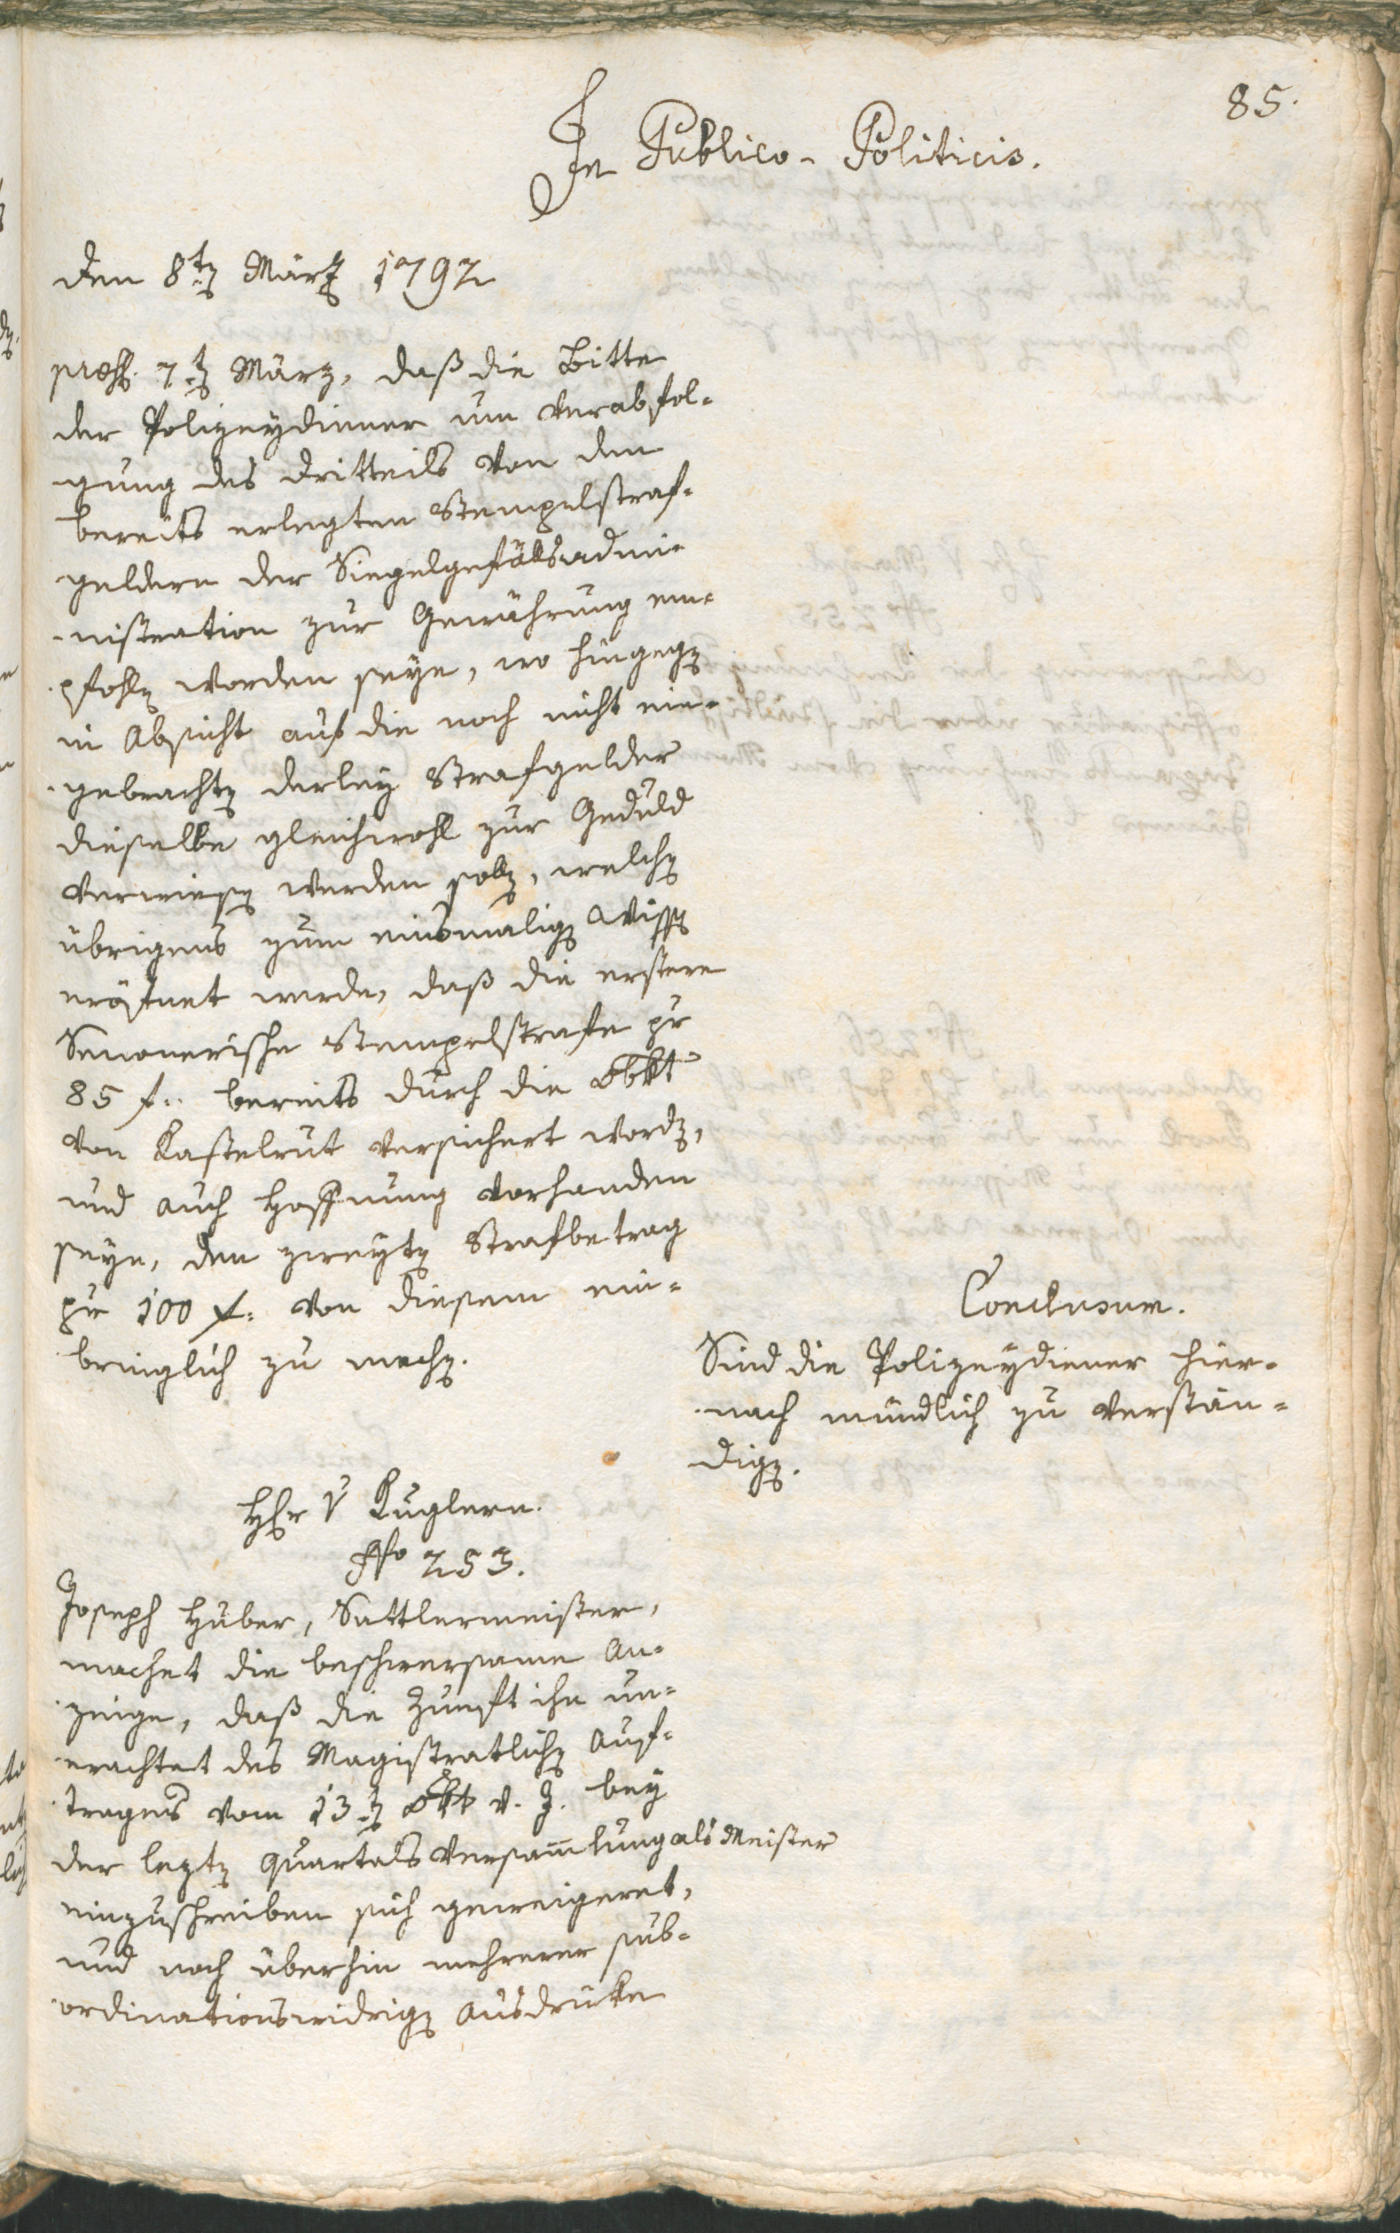 85.
In Publico-Politicis.
den 8ten März 1792
præs. 7ten März, daß die Bitte
der Polizeydiener um Verabfol-
gung des dritteils von den
bereits erlegten Stempelstraf-
geldern der Siegelgefällsadmi-
nistration zur Gewährung em-
pfohlen worden seye, wo hingegen
in Absicht auf die noch nicht ein-
gebrachten derley Strafgelder
dieselbe gleichwohl zur Geduld
verwiesen werden sollen, welchen
übrigens zum einsmaligen Wissen
eröfnet werde, daß die erstere
Senonerische Stempelstrafe pr
85 f. bereits durch die Obkt
von Kastelrut versichert worden,
und auch Hoffnung vorhanden
seye, den zweyten Strafbetrag
pr 100 f. von diesem ein-
bringlich zu machen.
Conclusum.
Sind die Polizeydiener hier-
nach mündlich zu verstän-
digen.
Hr v Kuglern.
No 253.
Joseph Huber, Sattlermeister,
machet die beschwersame An-
zeige, daß die Zunft ihn un-
erachtet des Magistratlichen Auf-
tragens vom 13ten Okt v. J. bey
der lezten Quartals Versammlung als Meister
einzuschreiben sich geweigeret,
und noch überhin mehrerer sub-
ordinationswidrigen Ausdrücken